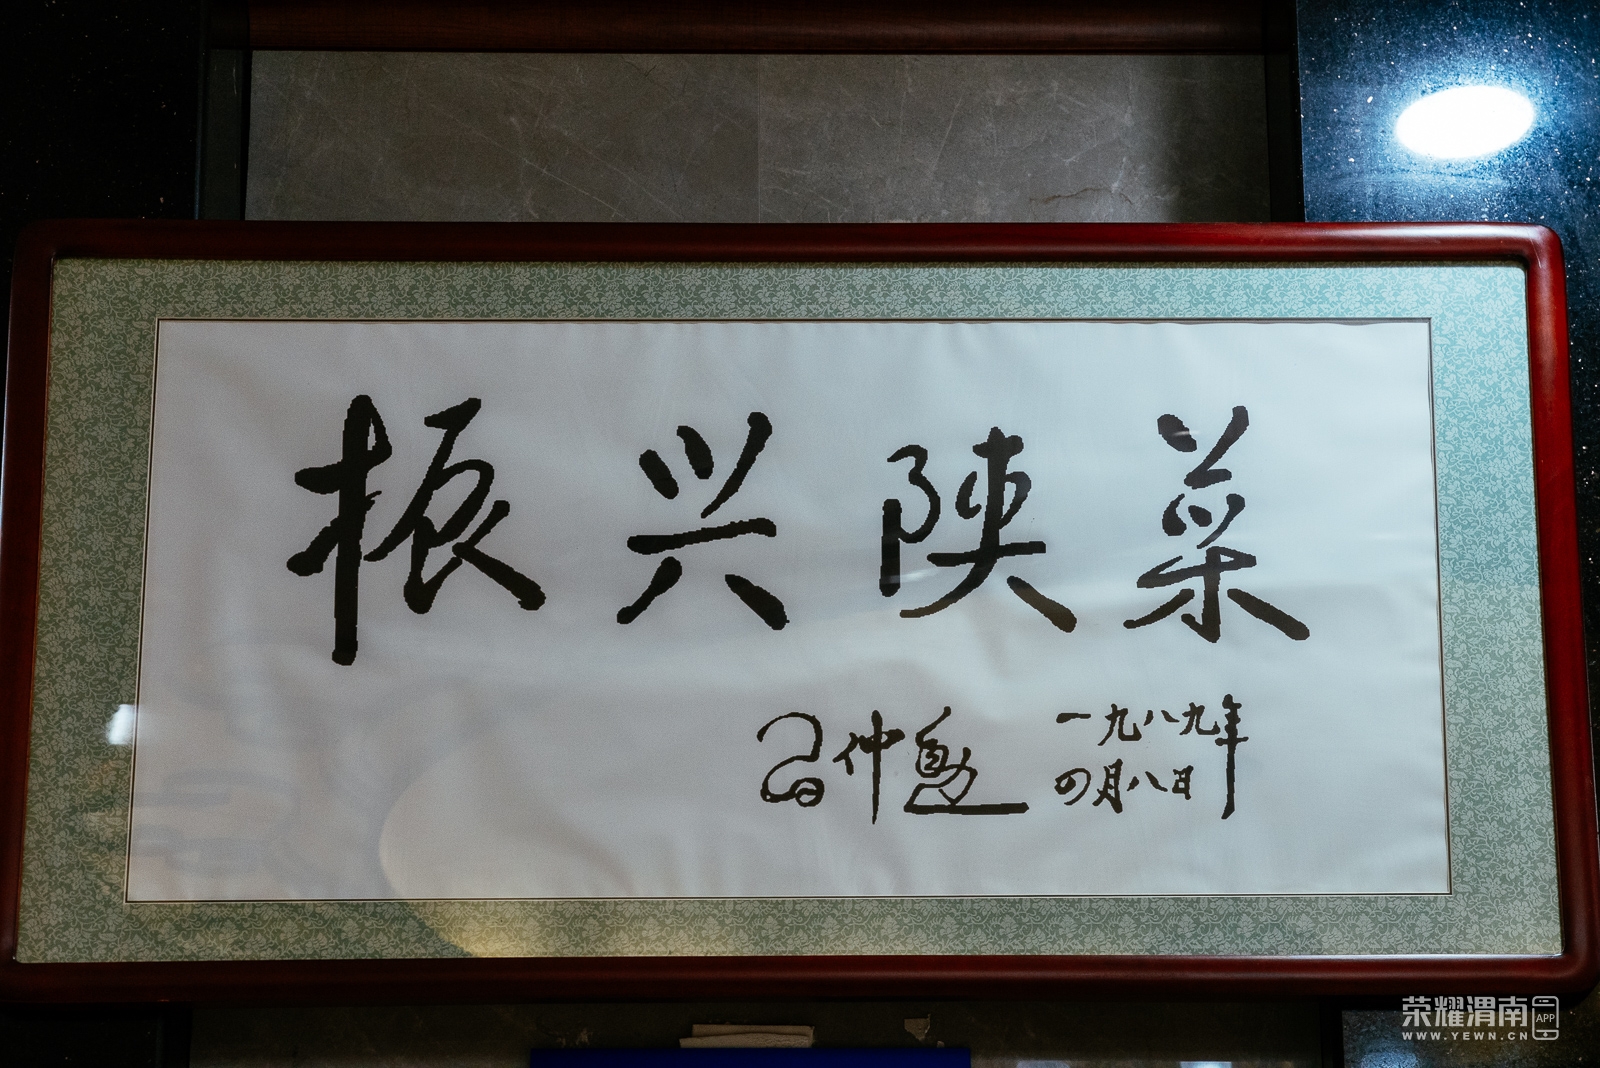 振兴陕菜
习仲勋
一九八九年
四月八日
荣耀渭南APP
WWW.YEWN.CN